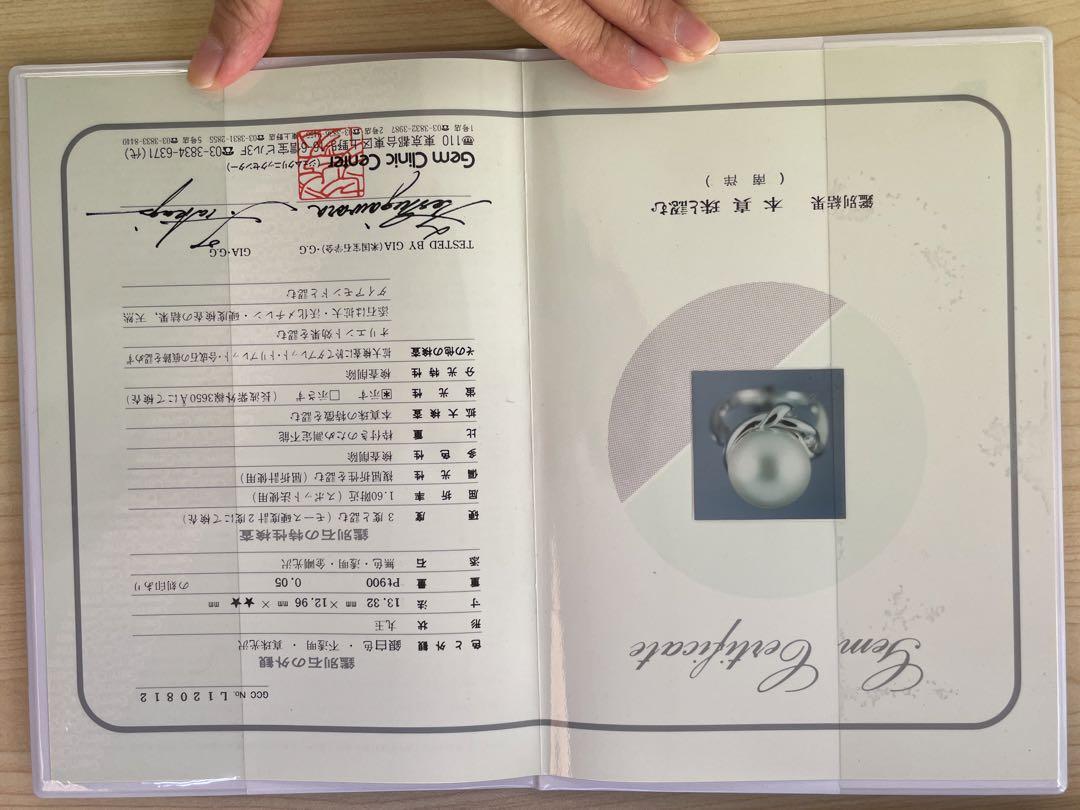 Gem Certificate
鑑別結果 本真珠と認む
(南洋)
GCC No. L120812
鑑別石の外観
色と外観 銀白色・不透明・真珠光沢
形状 丸玉
寸法 13.32 mm × 12.96 mm × ★★ mm
重量 Pt900 0.05 の刻印あり
添石 無色・透明・金剛光沢
鑑別石の特性検査
硬度 3度と認む(モース硬度計2度にて検査)
屈折率 1.60附近(スポット法使用)
偏光性 複屈折性を認む(屈折計使用)
多色性 検査削除
比重 枠付きのため測定不能
拡大検査 本真珠の特徴を認む
蛍光性 ☒示す □示さず (長波紫外線3650Åにて検査)
分光特性 検査削除
その他の検査 拡大検査に於てダブレット・トリプレット・合成石の痕跡を認めず
オリエント効果を認む
添石は拡大・沃化メチレン・硬度検査の結果、天然
ダイアモンドと認む
TESTED BY GIA(米国宝石学会)・G.G GIA・G.G
Gem Clinic Center (ジェムクリニックセンター)
〒110 東京都台東区上野 ビル3F ☎03-3834-6371(代)
1号店 ☎03-3832-3987 2号店 ☎03-3831-2855 5号店 ☎03-3833-8440